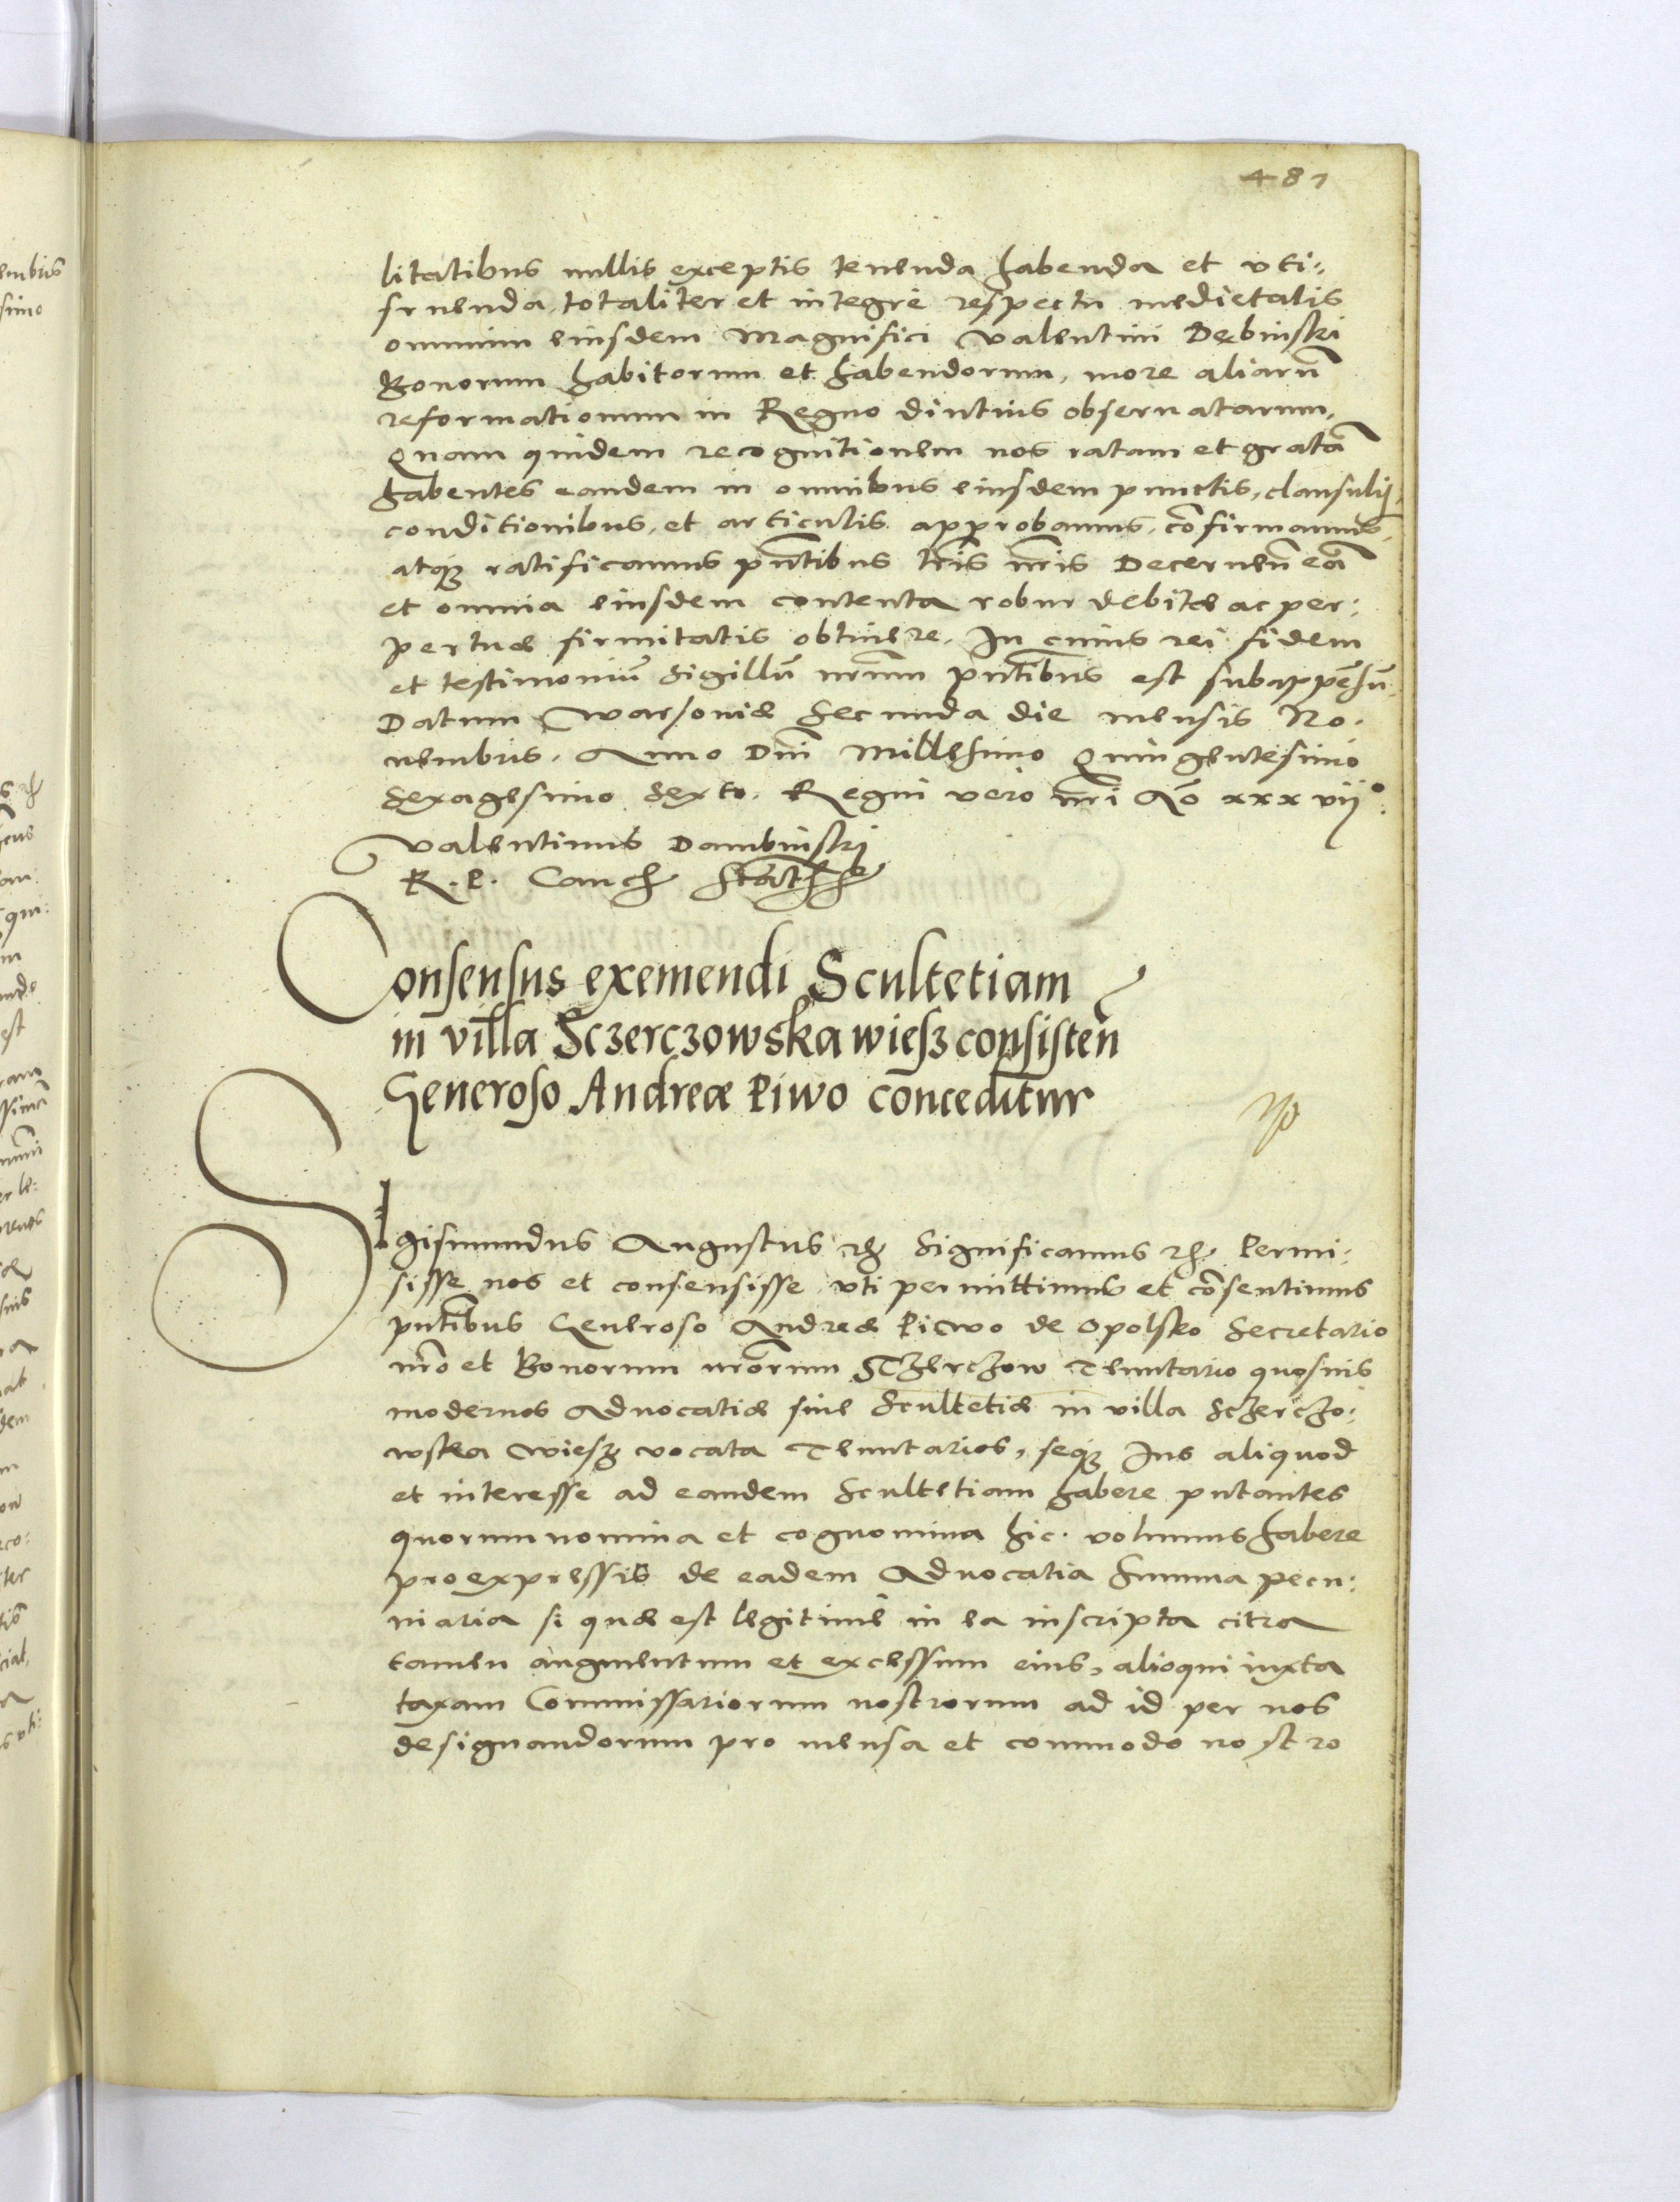 481
litatibus nullis exceptis tenenda habenda et uti-
fruenda, totaliter et integrè respectu medietatis
omnium eiusdem Magnifici Valentini Dębinski
Bonorum habitorum et habendorum, more aliarū
reformationum in Regno diutius obseruatarum,
Quam quidem recognitionem nos ratam et gratā
habentes eandem in omnibus eiusdem punctis, clausulis,
conditionibus, et articulis approbamus, cōfirmamus,
atq₃ ratificamus pn̄tibus lr̄is nr̄is Decernen̄ eā
et omnia eiusdem contenta robur debitæ ac per-
petuæ firmitatis obtinere. In cuius rei fidem
et testimoniū Sigillū nr̄um pn̄tibus est subappēsū.
Datum Warsoviæ Secunda die mensis No-
uembris. Anno Dn̄i Millesimo Quingentesimo
Sexagesimo Sexto. Regni vero nr̄i Aō xxxvijº.
Valentinus Dambinskj
R. P. Canc̄
Consensus exemendi Scultetiam
in villa Sczerczowska wiesz consisten̄
Generoso Andreæ Piwo conceditur
Sigismundus Augustus etc̄ Significamus etc̄. Permi-
sisse nos et consensisse uti permittimus et cōsentimus
pn̄tibus Generoso Andreæ Piwo de Opolsko Secretario
nr̄o et Bonorum nr̄orum Sczerczow Tenutario quosuis
modernos Aduocatiæ siue Scultetiæ in villa Sczerczo-
wska Wiesz vocata Tenutarios, seq₃ Ius aliquod
et interesse ad eandem Scultetiam habere putantes
quorum nomina et cognomina hic volumus habere
pro expressis de eadem Aduocatia Summa pecu-
niaria si quæ est legitimè in ea inscripta citra
tamen augmentum et excessum eius, alioqui iuxta
taxam Commissariorum nostrorum ad id per nos
designandorum pro mensa et commodo nostro